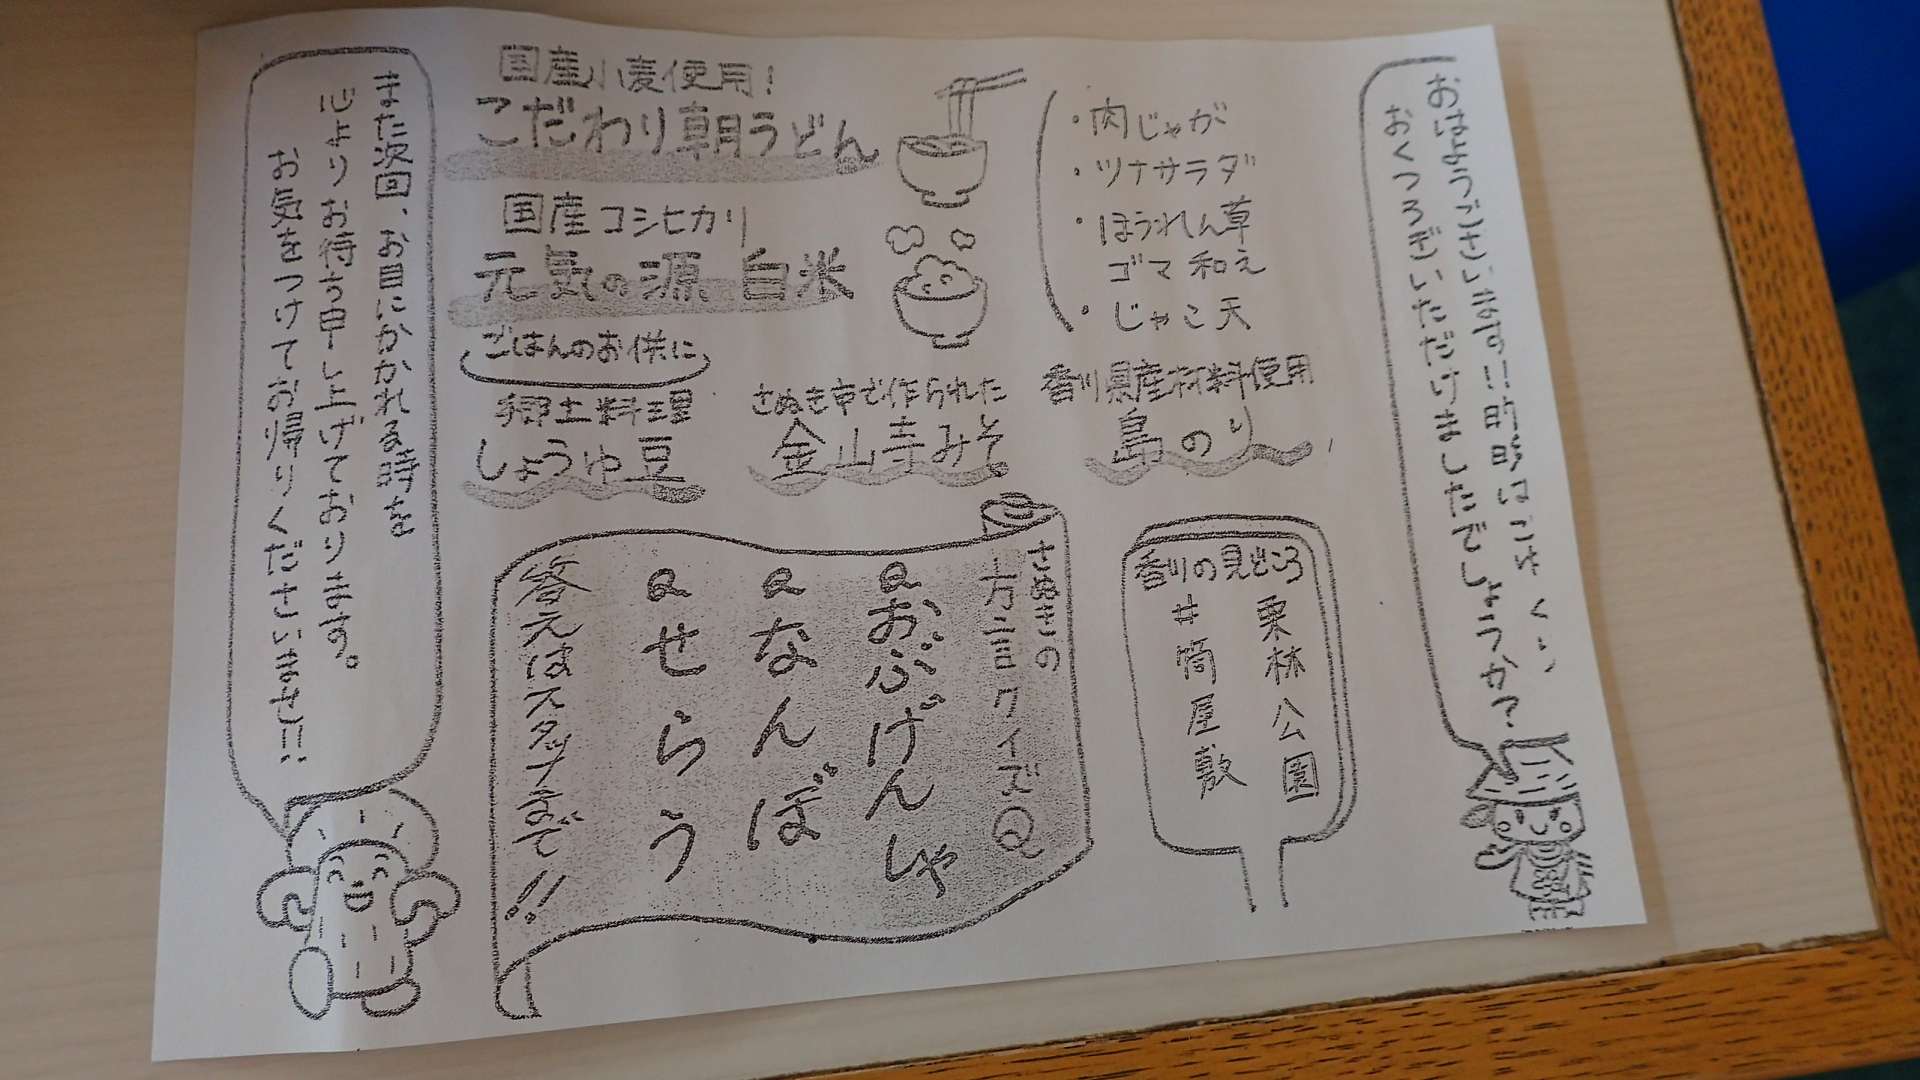 おはようございます!!昨晩はごゆっくり
おくつろぎいただけましたでしょうか?
国産小麦使用!
こだわり朝うどん
国産コシヒカリ
元気の源 白米
・肉じゃが
・ツナサラダ
・ほうれん草
ゴマ和え
・じゃこ天
ごはんのお供に
郷土料理
しょうゆ豆
さぬき市で作られた
金山寺みそ
香川県産材料使用
島のり
香川の見どころ
栗林公園
井筒屋敷
さぬきの
方言クイズQ
Qおぶげんしゃ
Qなんぼ
Qせらう
答えはスタッフまで!!
また次回、お目にかかれる時を
心よりお待ち申し上げております。
お気をつけてお帰りくださいませ!!!